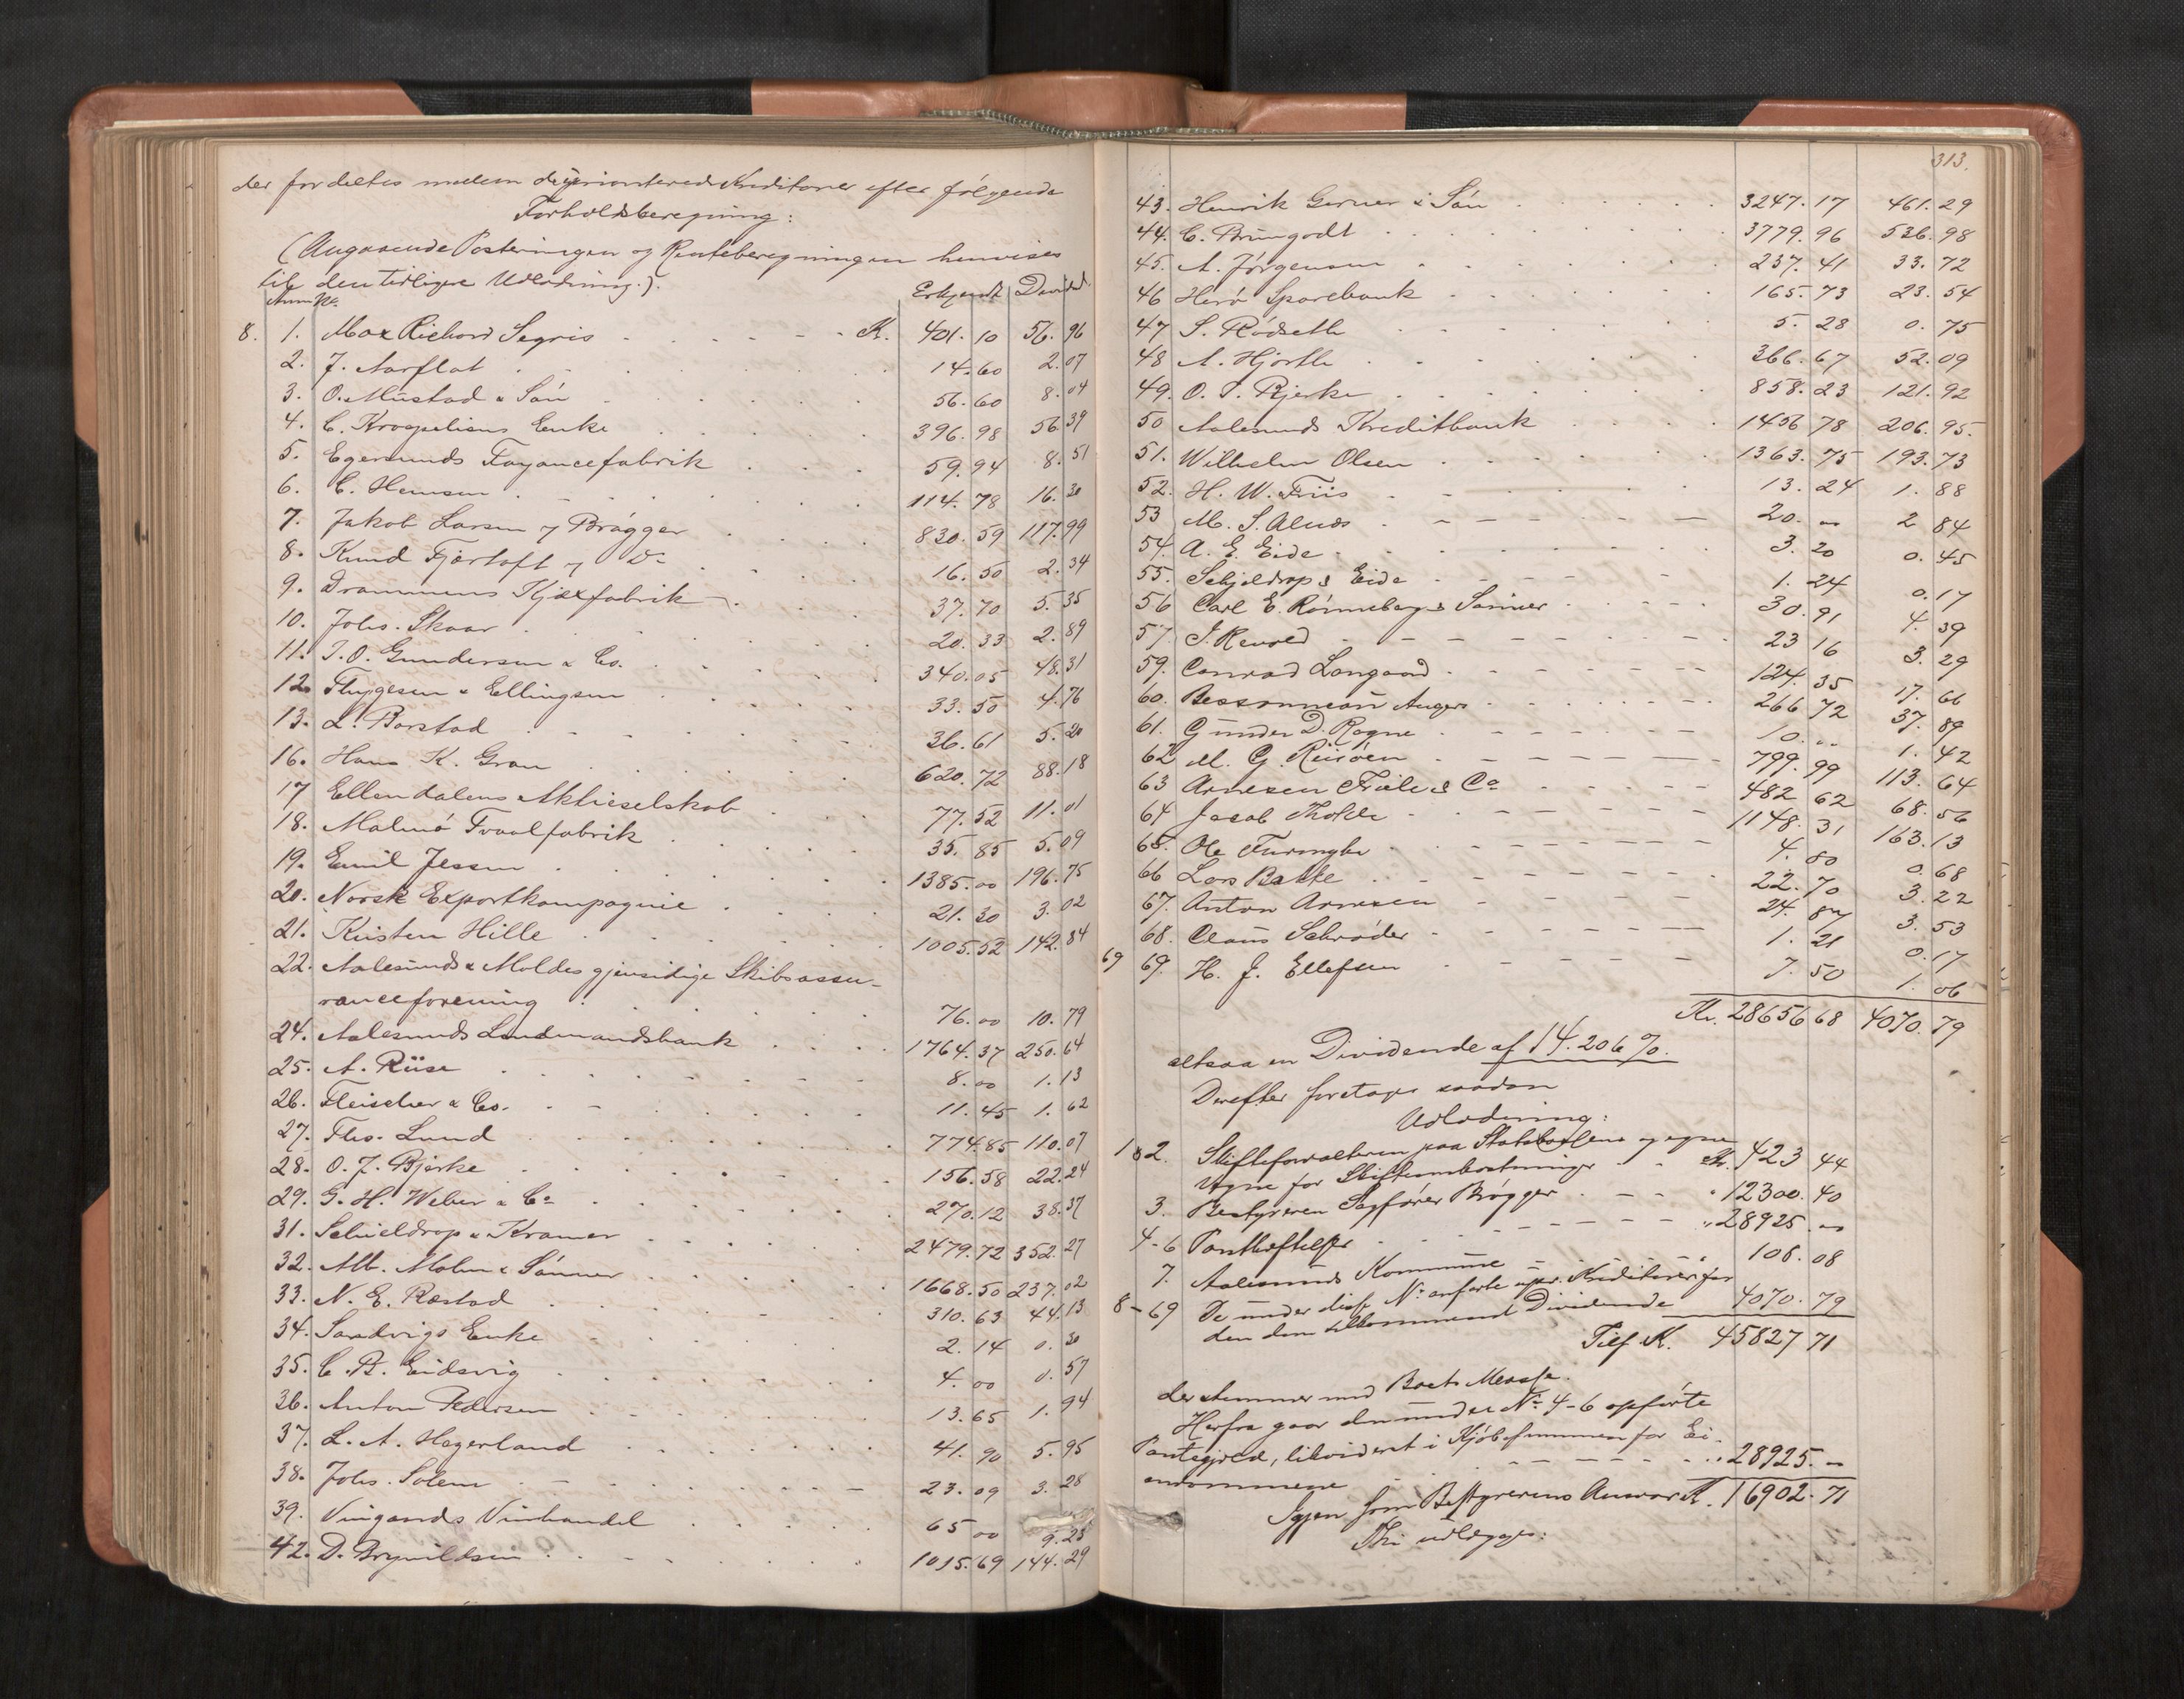 der fordeltes mellem de uprioriterede Kreditorer efter følgende
Forholdsberegning:
(Angaaende Posteringen og Renteberegningen henvises
til den tidligere Udlodning.).
Anm No. Erkjendt Dividend
8. 1. Max Richard Segris K. 401.10 56.96
2. J. Aarflot 14.60 2.07
3. O. Mustad & Sön 56.60 8.04
4. C. Krogelius Enke 396.98 56.39
5. Egersunds Fayancefabrik 59.94 8.51
6. C. Hemsen 114.78 16.30
7. Jakob Larsen v/ Brøgger 830.59 117.99
8. Knud Fjørtoft v/ Do 16.50 2.34
9. Drammens Kjæxfabrik 37.70 5.35
10. Johs. Skaar 20.33 2.89
11. J. O. Gundersen & Co. 340.05 48.31
12. Thygesen & Ellingsen 33.50 4.76
13. L. Barstad 36.61 5.20
16. Hans K. Gran 620.72 88.18
17 Ellendalens Aktieselskab 77.52 11.01
18. Malmö Tvaalfabrik 35.85 5.09
19. Emil Jessen 1385.00 196.75
20. Norsk Exportkompagnie 21.30 3.02
21. Kristen Hille 1005.52 142.84
22. Aalesunds & Moldes gjensidige Skibsassu-
ranceforening 76.00 10.79
24. Aalesunds Landmandsbank 1764.37 250.64
25. A. Riise 8.00 1.13
26. Fleischer & Co. 11.45 1.62
27. Ths. Lund 774.85 110.07
28. O. J. Bjerke 156.58 22.24
29. G. H. Weber & Co 270.12 38.37
31. Schieldrop & Kramer 2479.72 352.27
32. Alb. Malm & Sönner 1668.50 237.02
33. N. E. Rastad 310.63 44.13
34. Sandvigs Enke 2.14 0.30
35. C. B. Eidsvig 4.00 0.57
36. Anton Pedersen 13.65 1.94
37. L. A. Hagerland 41.90 5.95
38. Johs. Solem 23.09 3.28
39. Viigaards Vinhandel 65 00 9.23
42. D. Brynildsen 1015.69 144.29
313.
43. Henrik Gerner & Sön 3247.17 461.29
44. C. Brungodt 3779.96 536.98
45. A. Jørgensen 237.41 33.72
46 Herø Sparebank 165.73 23.54
47 S. Rödseth 5.28 0.75
48 A. Hjorth 366.67 52.09
49. O. J. Bjerke 858.23 121.92
50 Aalesunds Kreditbank 1456 78 206.95.
51. Wilhelm Olsen 1363.75 193.73
52. H. W. Friis 13.24 1.88
53 M. S. Alnæs 20.- 2 84
54. A. E. Eide 3.20 0.45
55. Schjeldrop & Eide 1.24 0.17
56 Carl E. Rönneberg & Sönner 30.91 4.39
57 J. Revold 23 16 3.29
59. Conrad Langaard 124.35 17.66
60. Bessonneau Angers 266 72 37.89
61. Gunder D. Rogne 10... 1.42
62 M. G. Reisöen 799.99 113.64
63 Arnesen Fiele & Co 482 62 68.56
64 Jacob Tholle 1148.31 163.13
65. Ole Furmyhr 4.80 0.68
66 Lars Bakke 22.70 3.22
67. Anton Arnesen 24.87 3.53
68. Claus Schrøder 1.21 0.17
69 69. H. J. Ellefsen 7.50 1.06
Kr. 28656 68 4070.79
altsaa en Dividende af 14.206 %.
Derefter foretages saadan
Udlodning:
1 & 2. Skifteforvalteren paa Statskassens og egne
Vegne for Skifteomkostninger Kr. 423 44
3. Bestyreren Sagfører Brøgger " 12300.40
4-6 Pantheftelser " 28925.-
7. Aalesunds Kommune 108.08
8-69 De under disse No anførte upr. Kreditorer for
den dem tilkommende Dividende 4070.79
Tils K. 45827 71
der stemmer med Boets Masse.
Herfra gaar den under No 4-6 opførte
Pantegjeld, likvideret i Kjöbesummen for Ei-
endommene " 28925.-
Igjen som Bestyrerens Ansvar K. 16902.71
Thi udlægges: